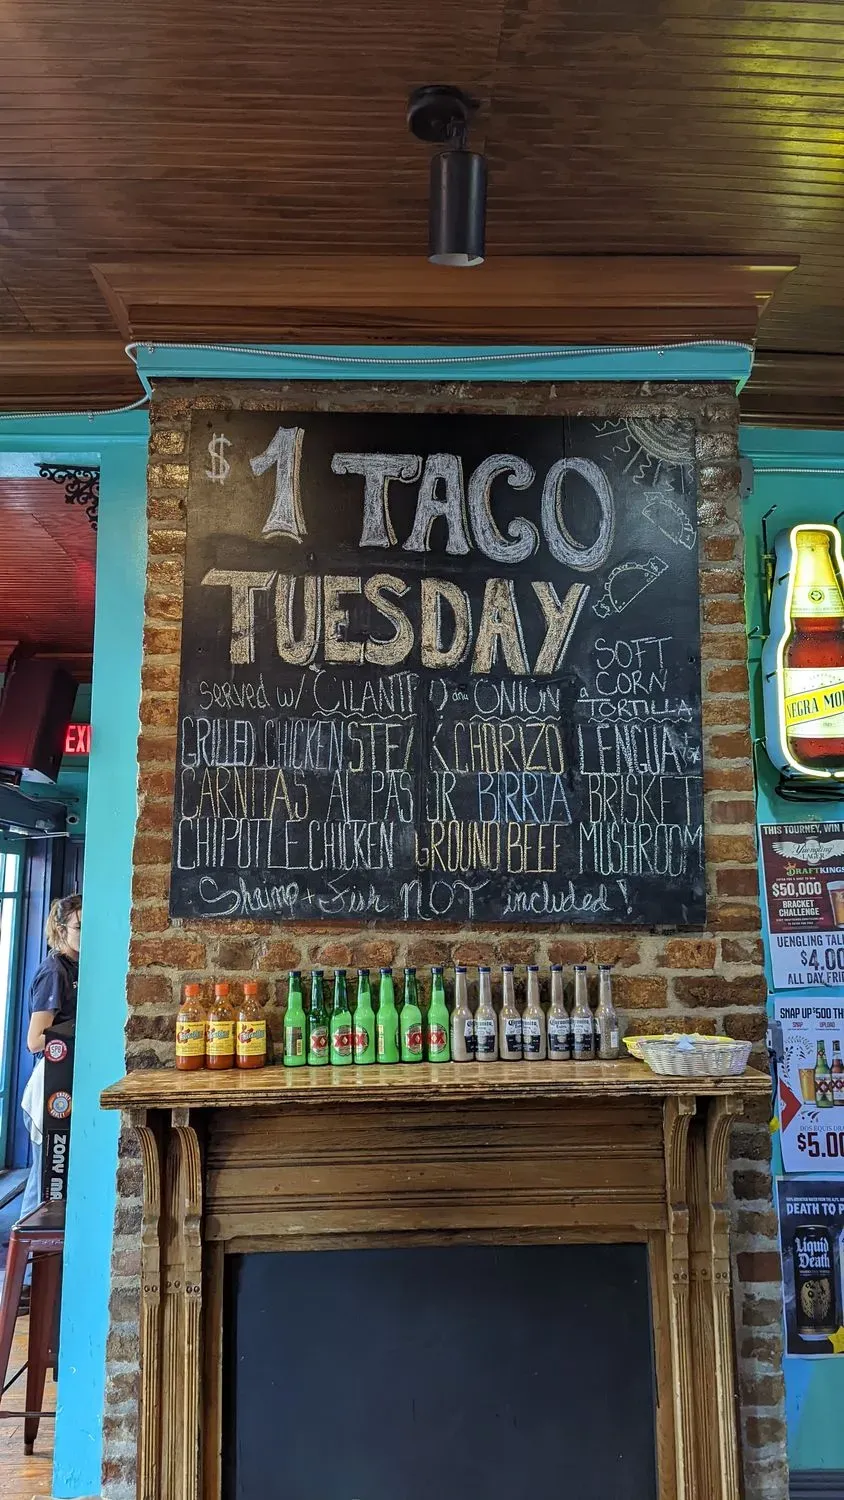 $1 TACO
TUESDAY
SERVED W/ CILANTRO and ONION
a SOFT
CORN
TORTILLA
GRILLED CHICKEN STEAK CHORIZO LENGUA
CARNITAS AL PASTOR BIRRIA BRISKET
CHIPOTLE CHICKEN GROUND BEEF MUSHROOM
Shrimp + Fish NOT included!
EXI
NEGRA MO
THIS TOURNEY, WIN
Yuengling
LAGER
DRAFTKINGS
$50,000
BRACKET
CHALLENGE
UENGLING TAL
$4.00
ALL DAY FRI
SNAP UP $500 TH
SNAP UPLOAD
DOS EQUIS DRA
$5.00
DEATH TO P
Liquid
Death
XX
XX
XX
XX
Corona
Corona
Corona
ZONY MA